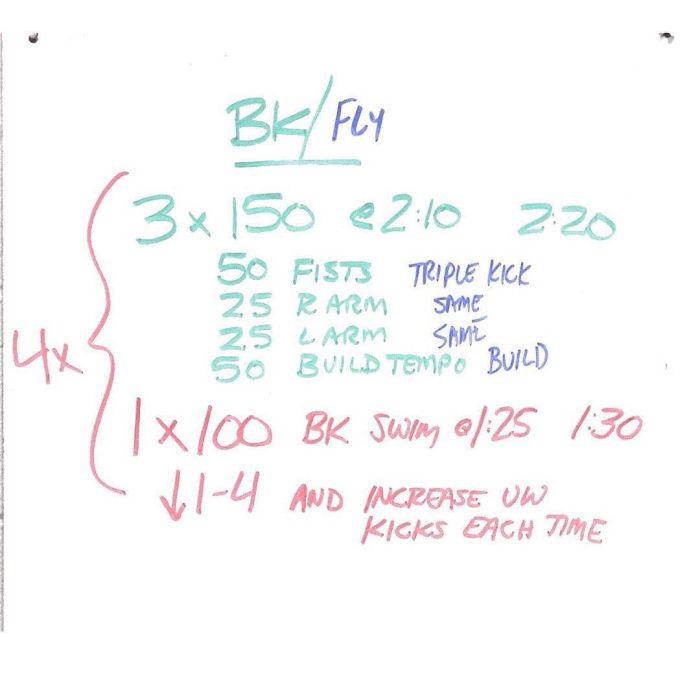 BK/FLY
3 x 150 @ 2:10 2:20
50 FISTS TRIPLE KICK
25 R ARM SAME
25 L ARM SAME
50 BUILD TEMPO BUILD
4x
1 x 100 BK SWIM @ 1:25 1:30
↓ 1-4 AND INCREASE UW
KICKS EACH TIME